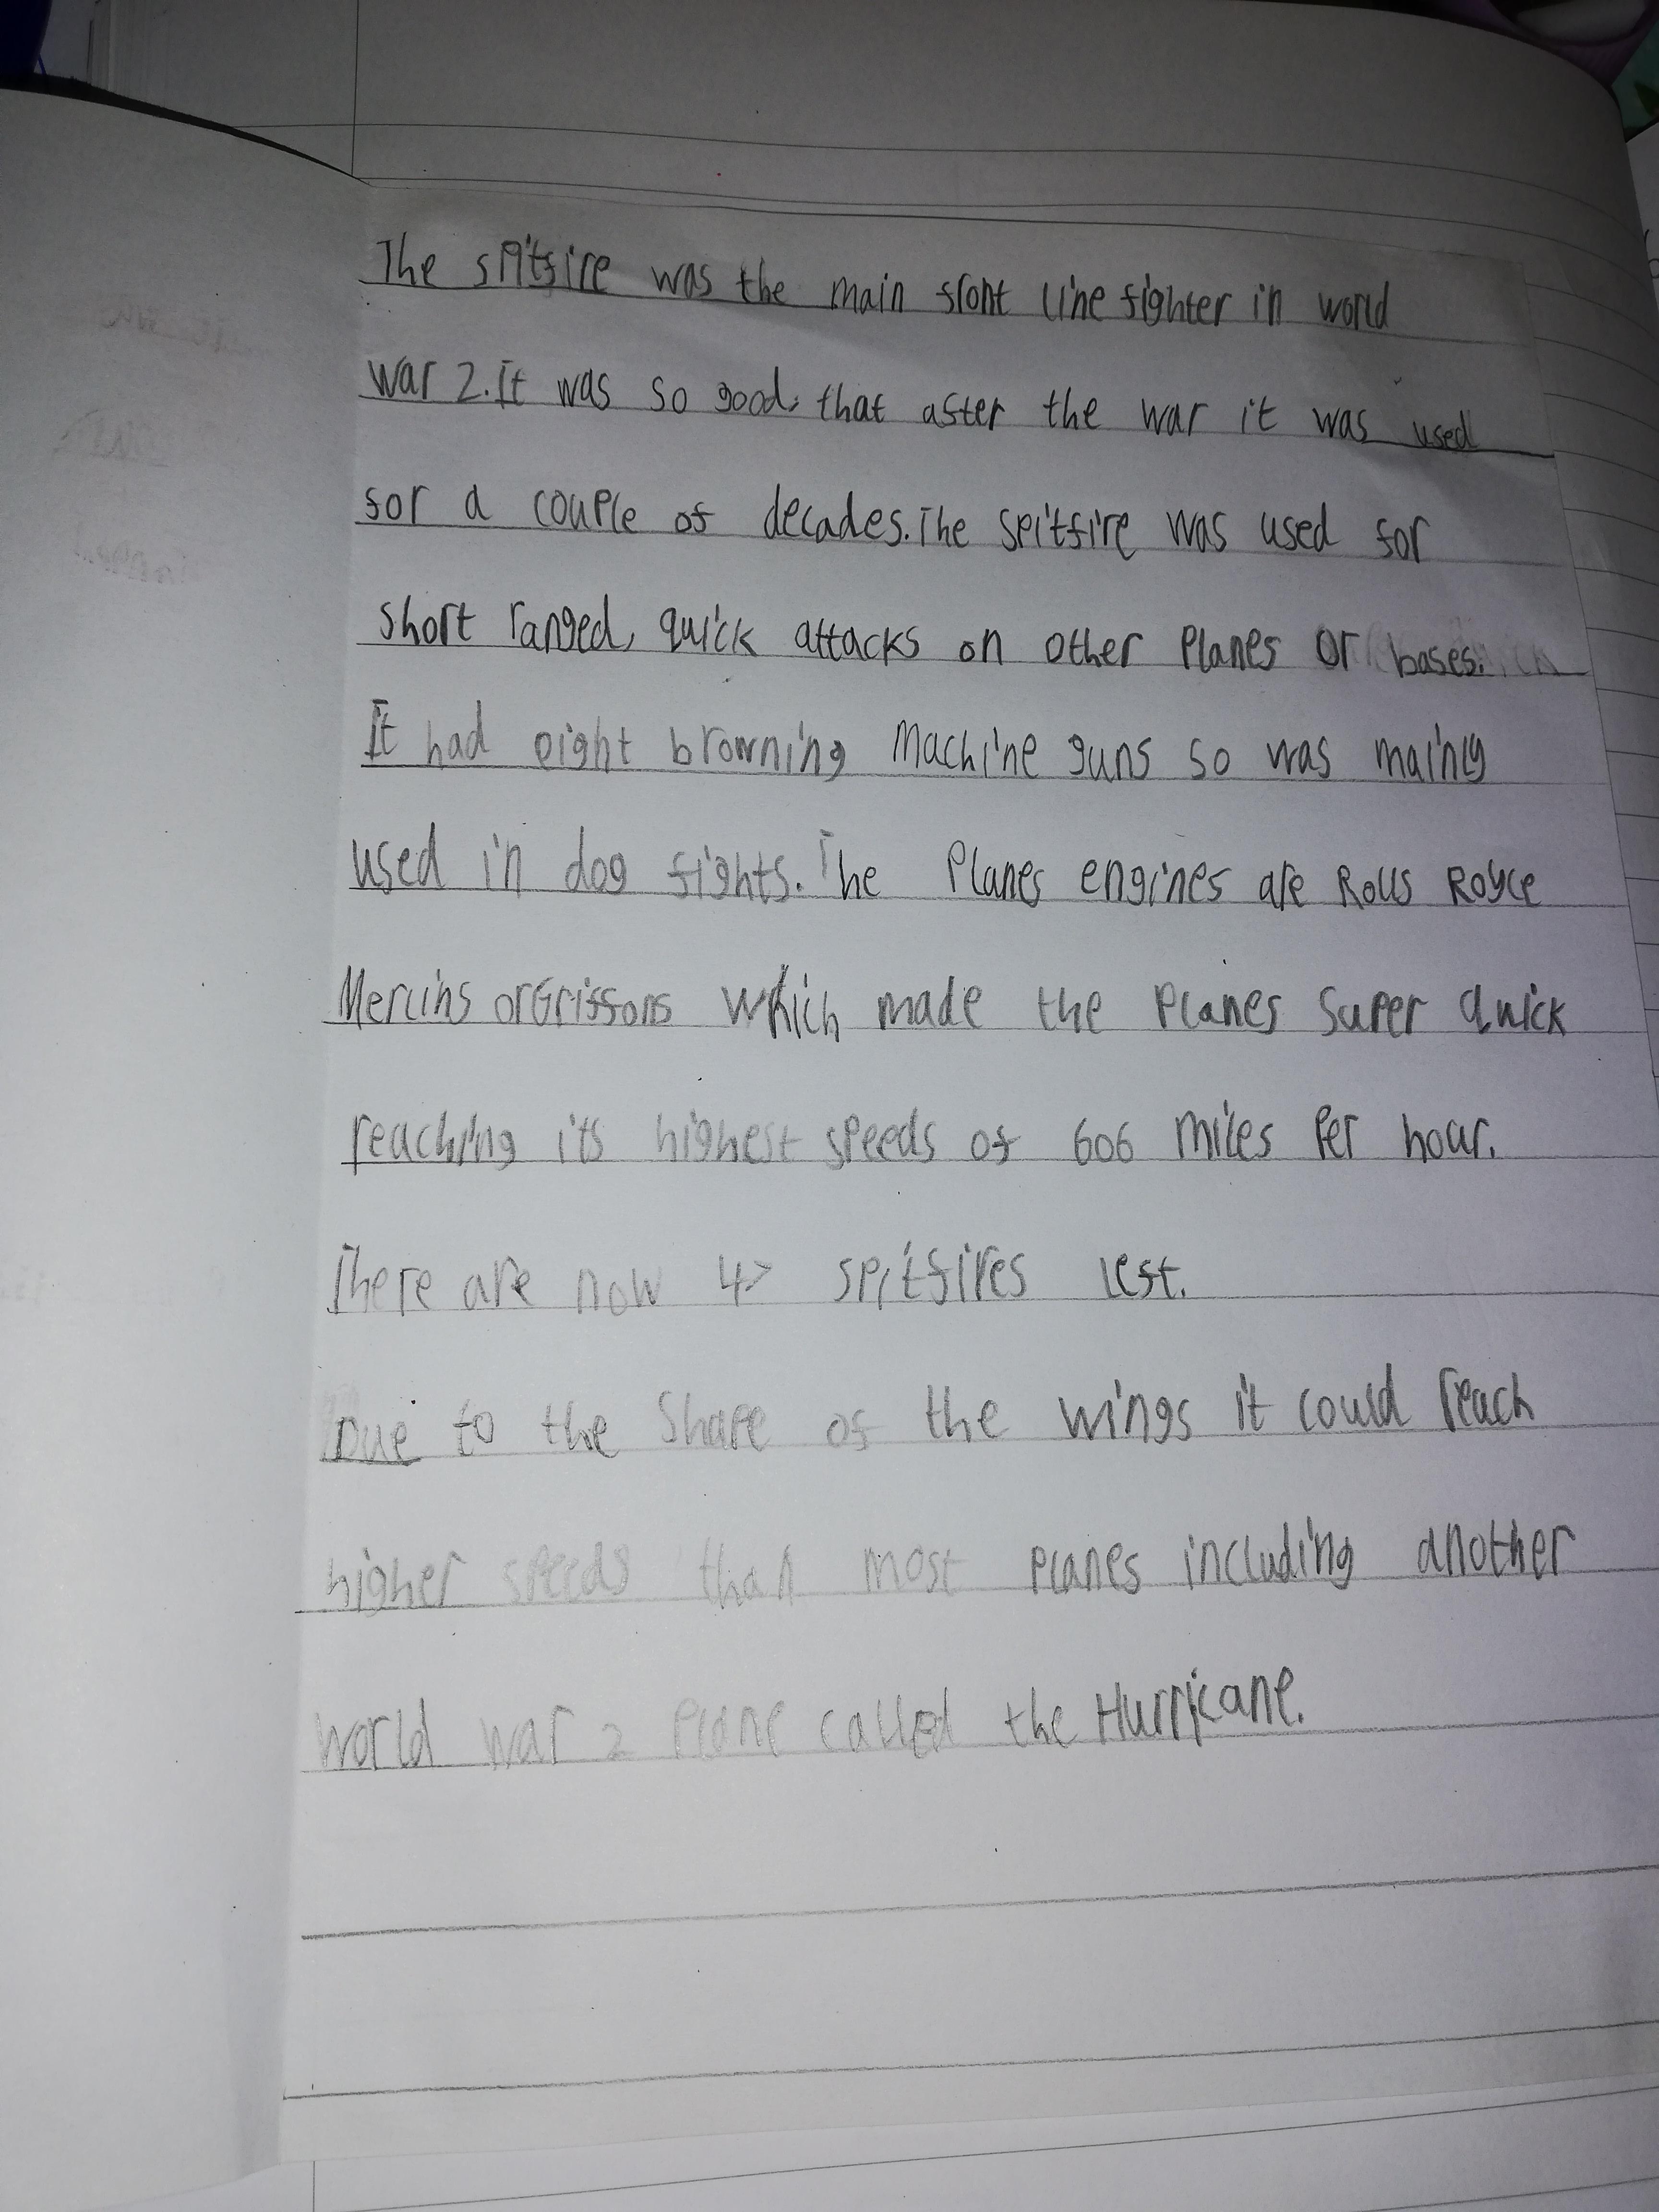 The spitfire was the main front line fighter in world
war 2. It was so good, that after the war it was used
for a couple of decades. The spitfire was used for
short ranged, quick attacks on other planes or bases.
It had eight browning machine guns so was mainly
used in dog fights. The planes engines are Rolls Royce
Merlins or Griffons which made the planes super quick
reaching its highest speeds of 606 miles per hour.
There are now 47 spitfires left.
Due to the shape of the wings it could reach
higher speeds than most planes including another
world war 2 plane called the Hurricane.